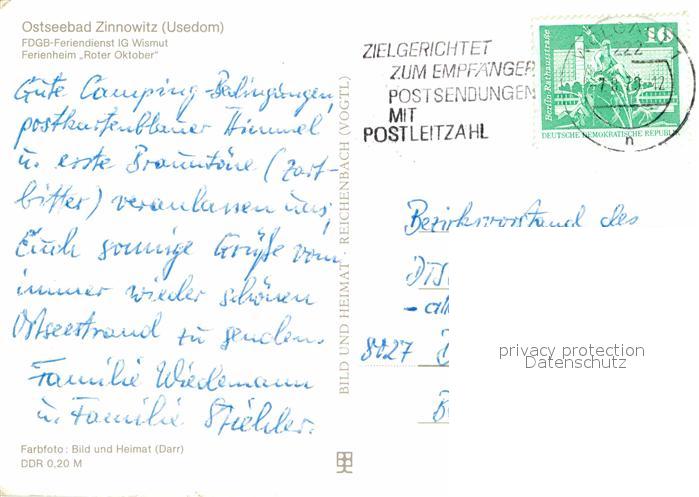 Ostseebad Zinnowitz (Usedom)
FDGB-Feriendienst IG Wismut
Ferienheim „Roter Oktober"
Gute Camping-Bedingungen,
postkartenblauer Himmel
u. erste Brauntöne (zart-
bitter) veranlassen uns,
Euch sonnige Grüße vom
immer wieder schönen
Ostseestrand zu senden.
Familie Wiedemann
u. Familie Stiehler.
Farbfoto: Bild und Heimat (Darr)
DDR 0,20 M
BILD UND HEIMAT · REICHENBACH (VOGTL)
ZIELGERICHTET
ZUM EMPFÄNGER
POSTSENDUNGEN
MIT
POSTLEITZAHL
222
n
10
Berlin, Rathausstraße
DEUTSCHE DEMOKRATISCHE REPUBLIK
Bezirksvorstand des
8027
privacy protection
Datenschutz